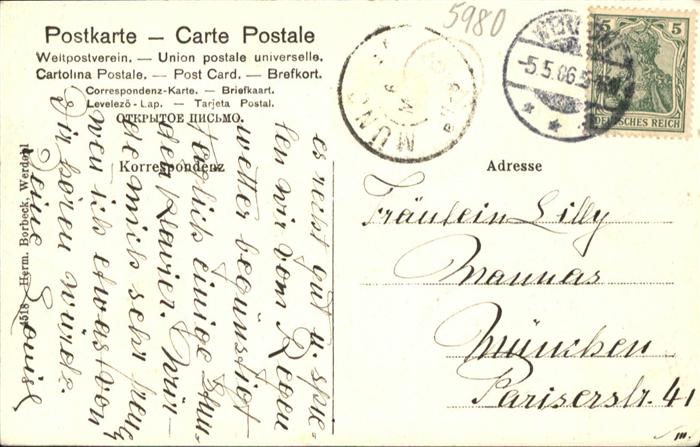 5980
Postkarte — Carte Postale
Weltpostverein. — Union postale universelle.
Cartolina Postale. — Post Card. — Brefkort.
Correspondenz-Karte. — Briefkaart.
Levelező-Lap. — Tarjeta Postal.
ОТКРЫТОЕ ПИСЬМО.
Korrespondenz
es recht gut u. spie-
len wir vom Regen
wetter begünstigt
täglich einige Stun-
den Klavier. Wür-
de mich sehr freuen
wen ich etwas von
Dir hören würde.
Deine Louise
4518 Herm. Borbeck, Werdohl
MÜN
5.5.06.5
5 5
DEUTSCHES REICH
Adresse
Fräulein Lilly
Mannas
München
Pariserstr. 41